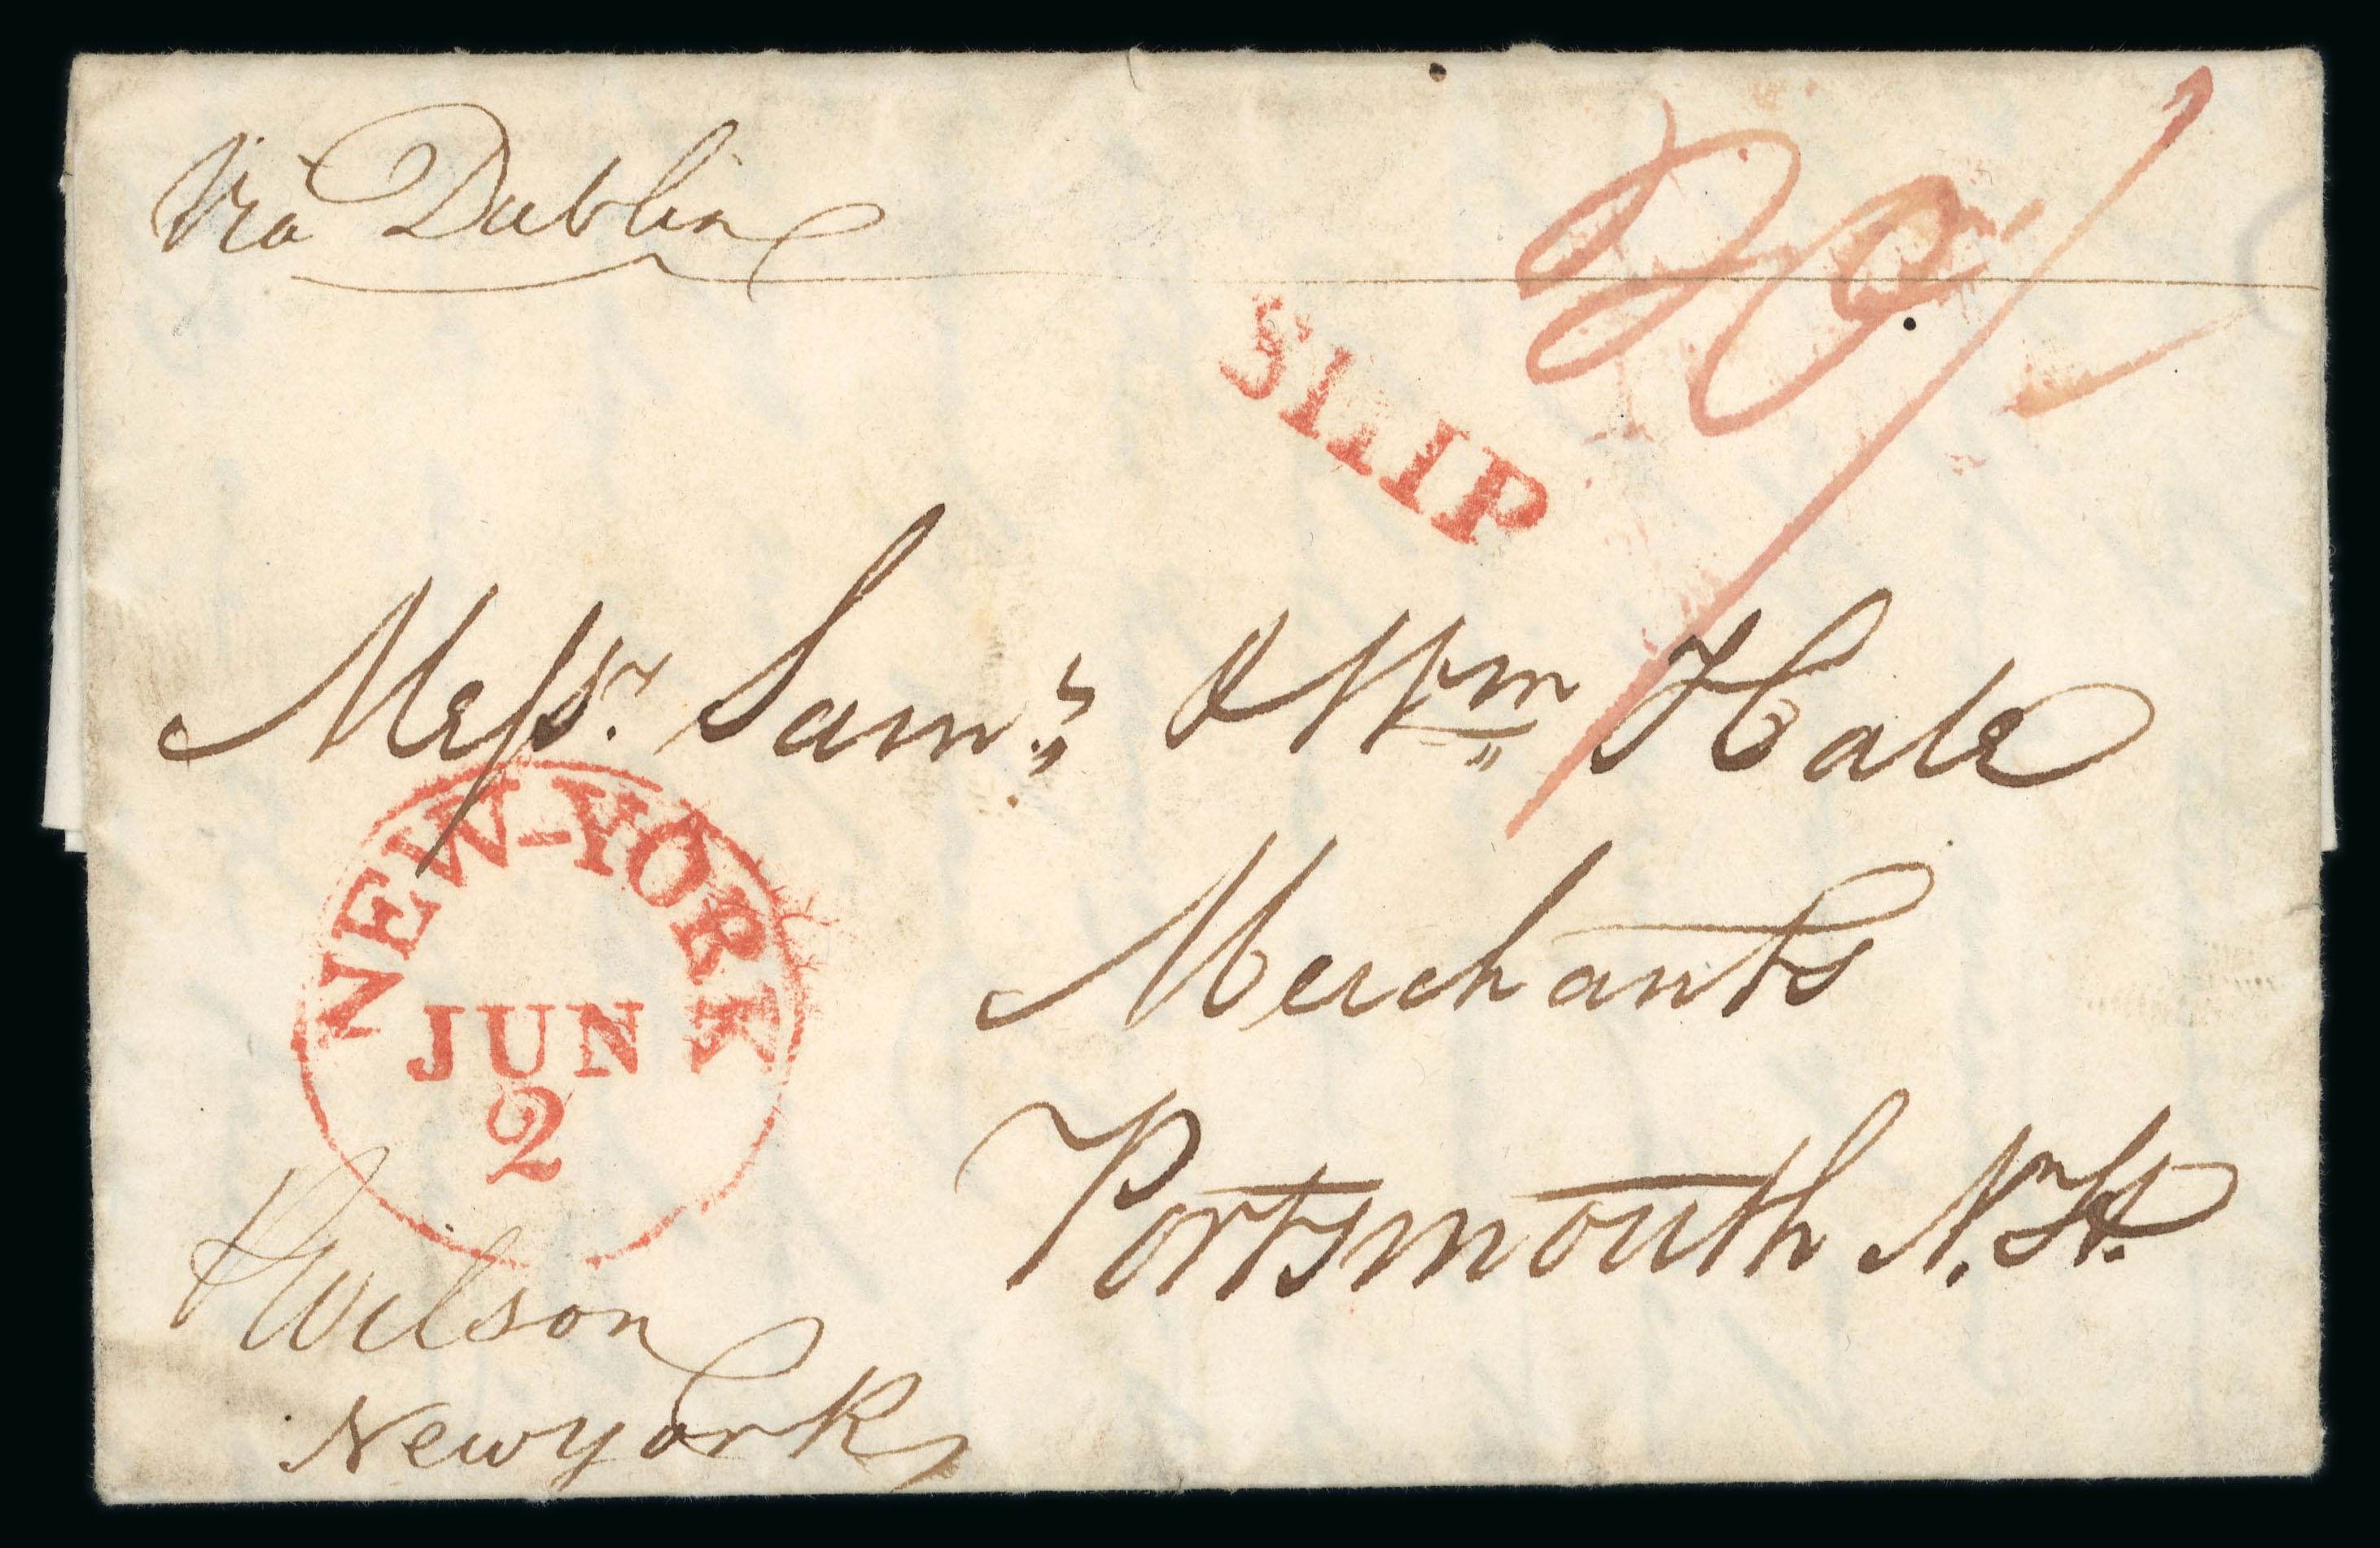 Via Dublin
SHIP
Messrs. Saml. & Wm. Hale
Merchants
Portsmouth N.H.
NEW-YORK
JUN
2
Wilson
New york